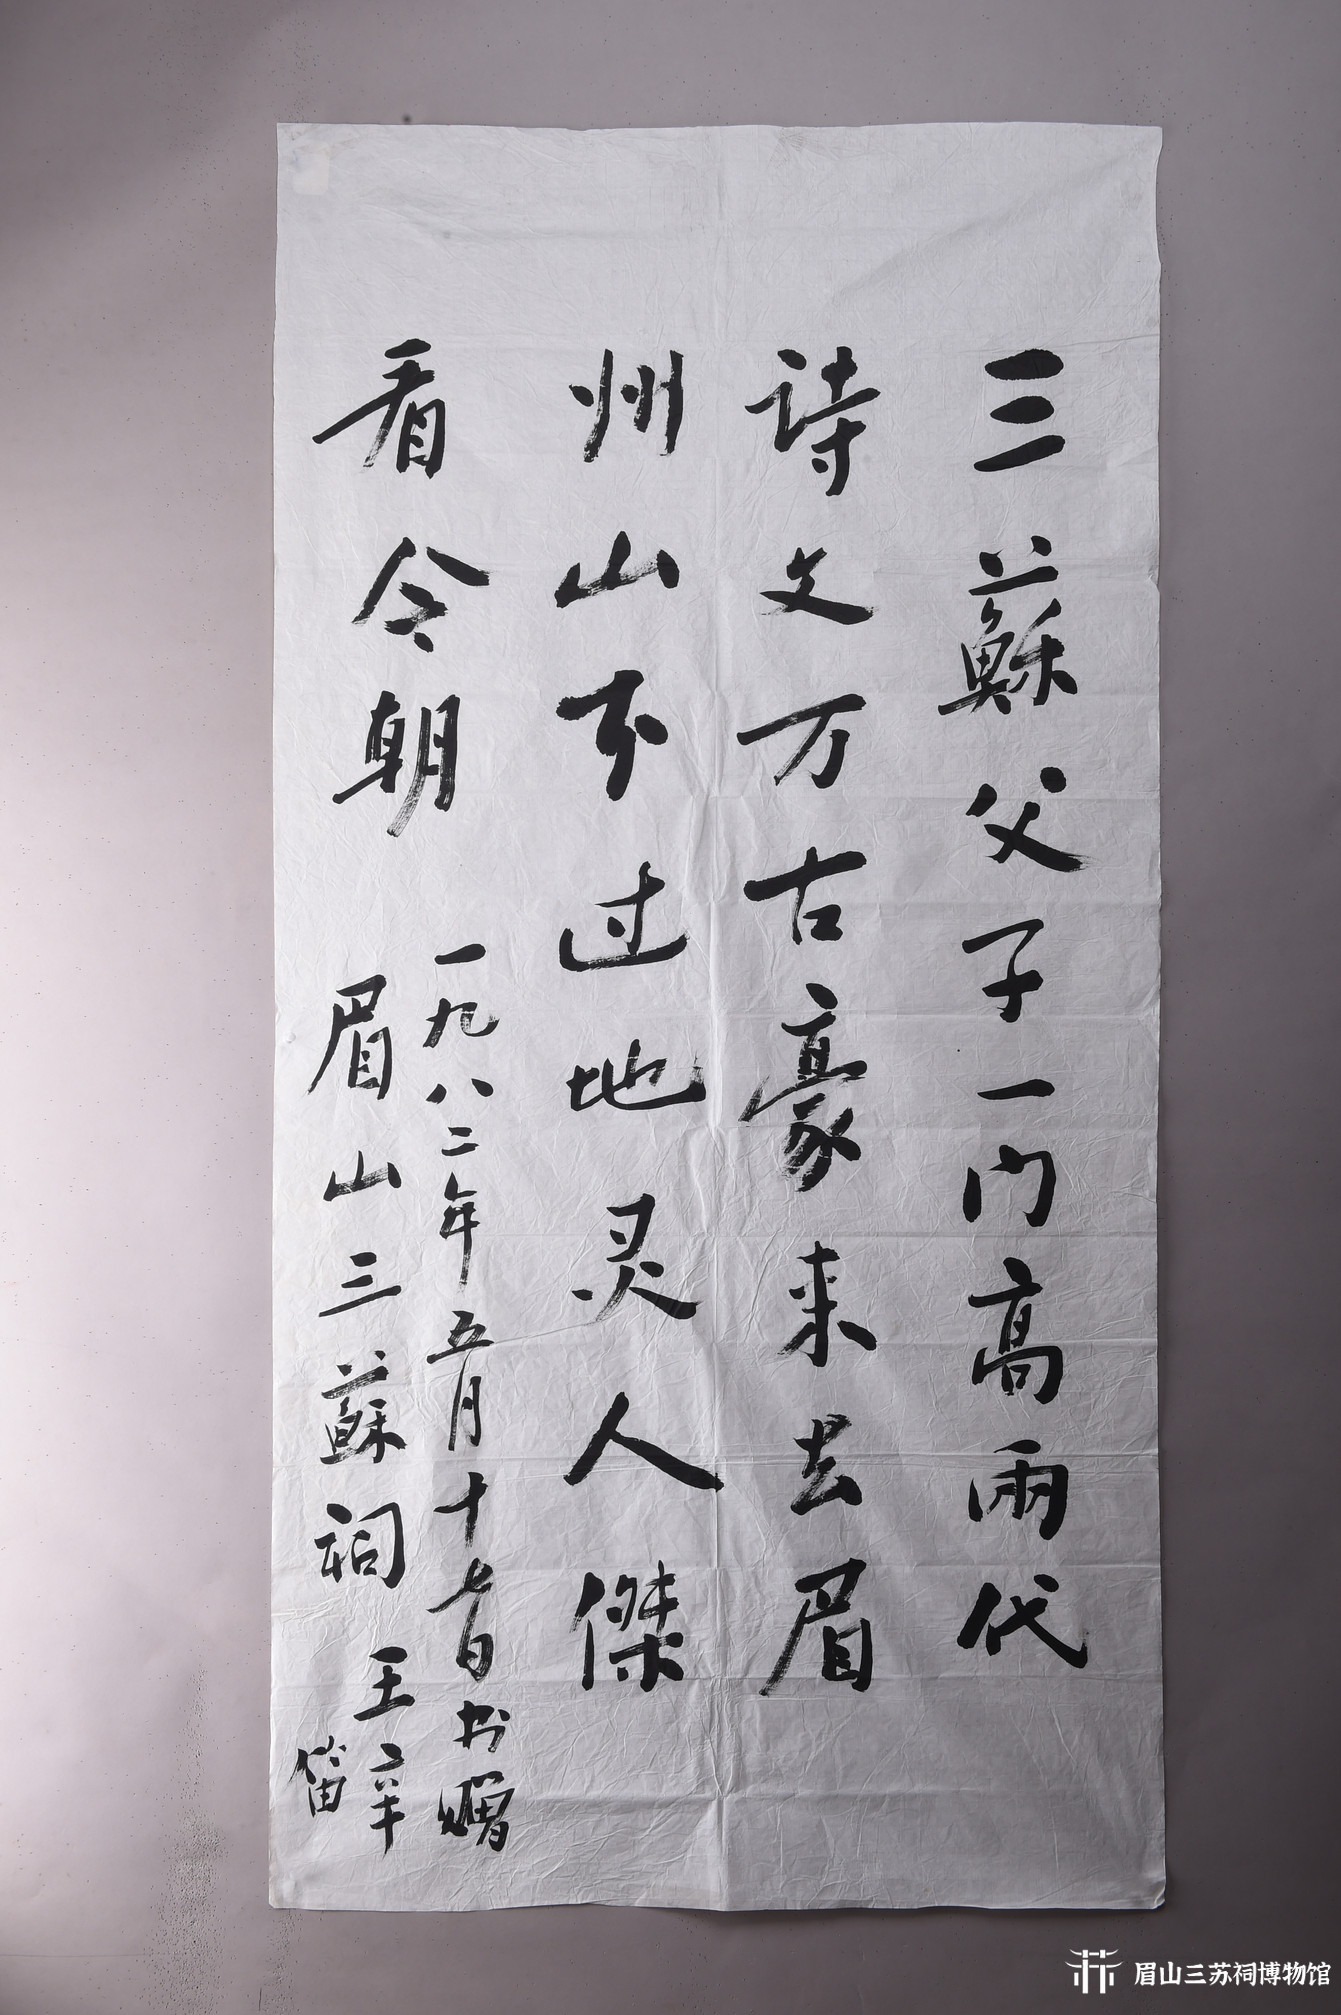 三蘇父子一门高兩代
诗文万古豪来去眉
州山不过地灵人傑
看今朝
一九八二年五月十七日书赠
眉山三蘇祠
王辛
笛
眉山三苏祠博物馆